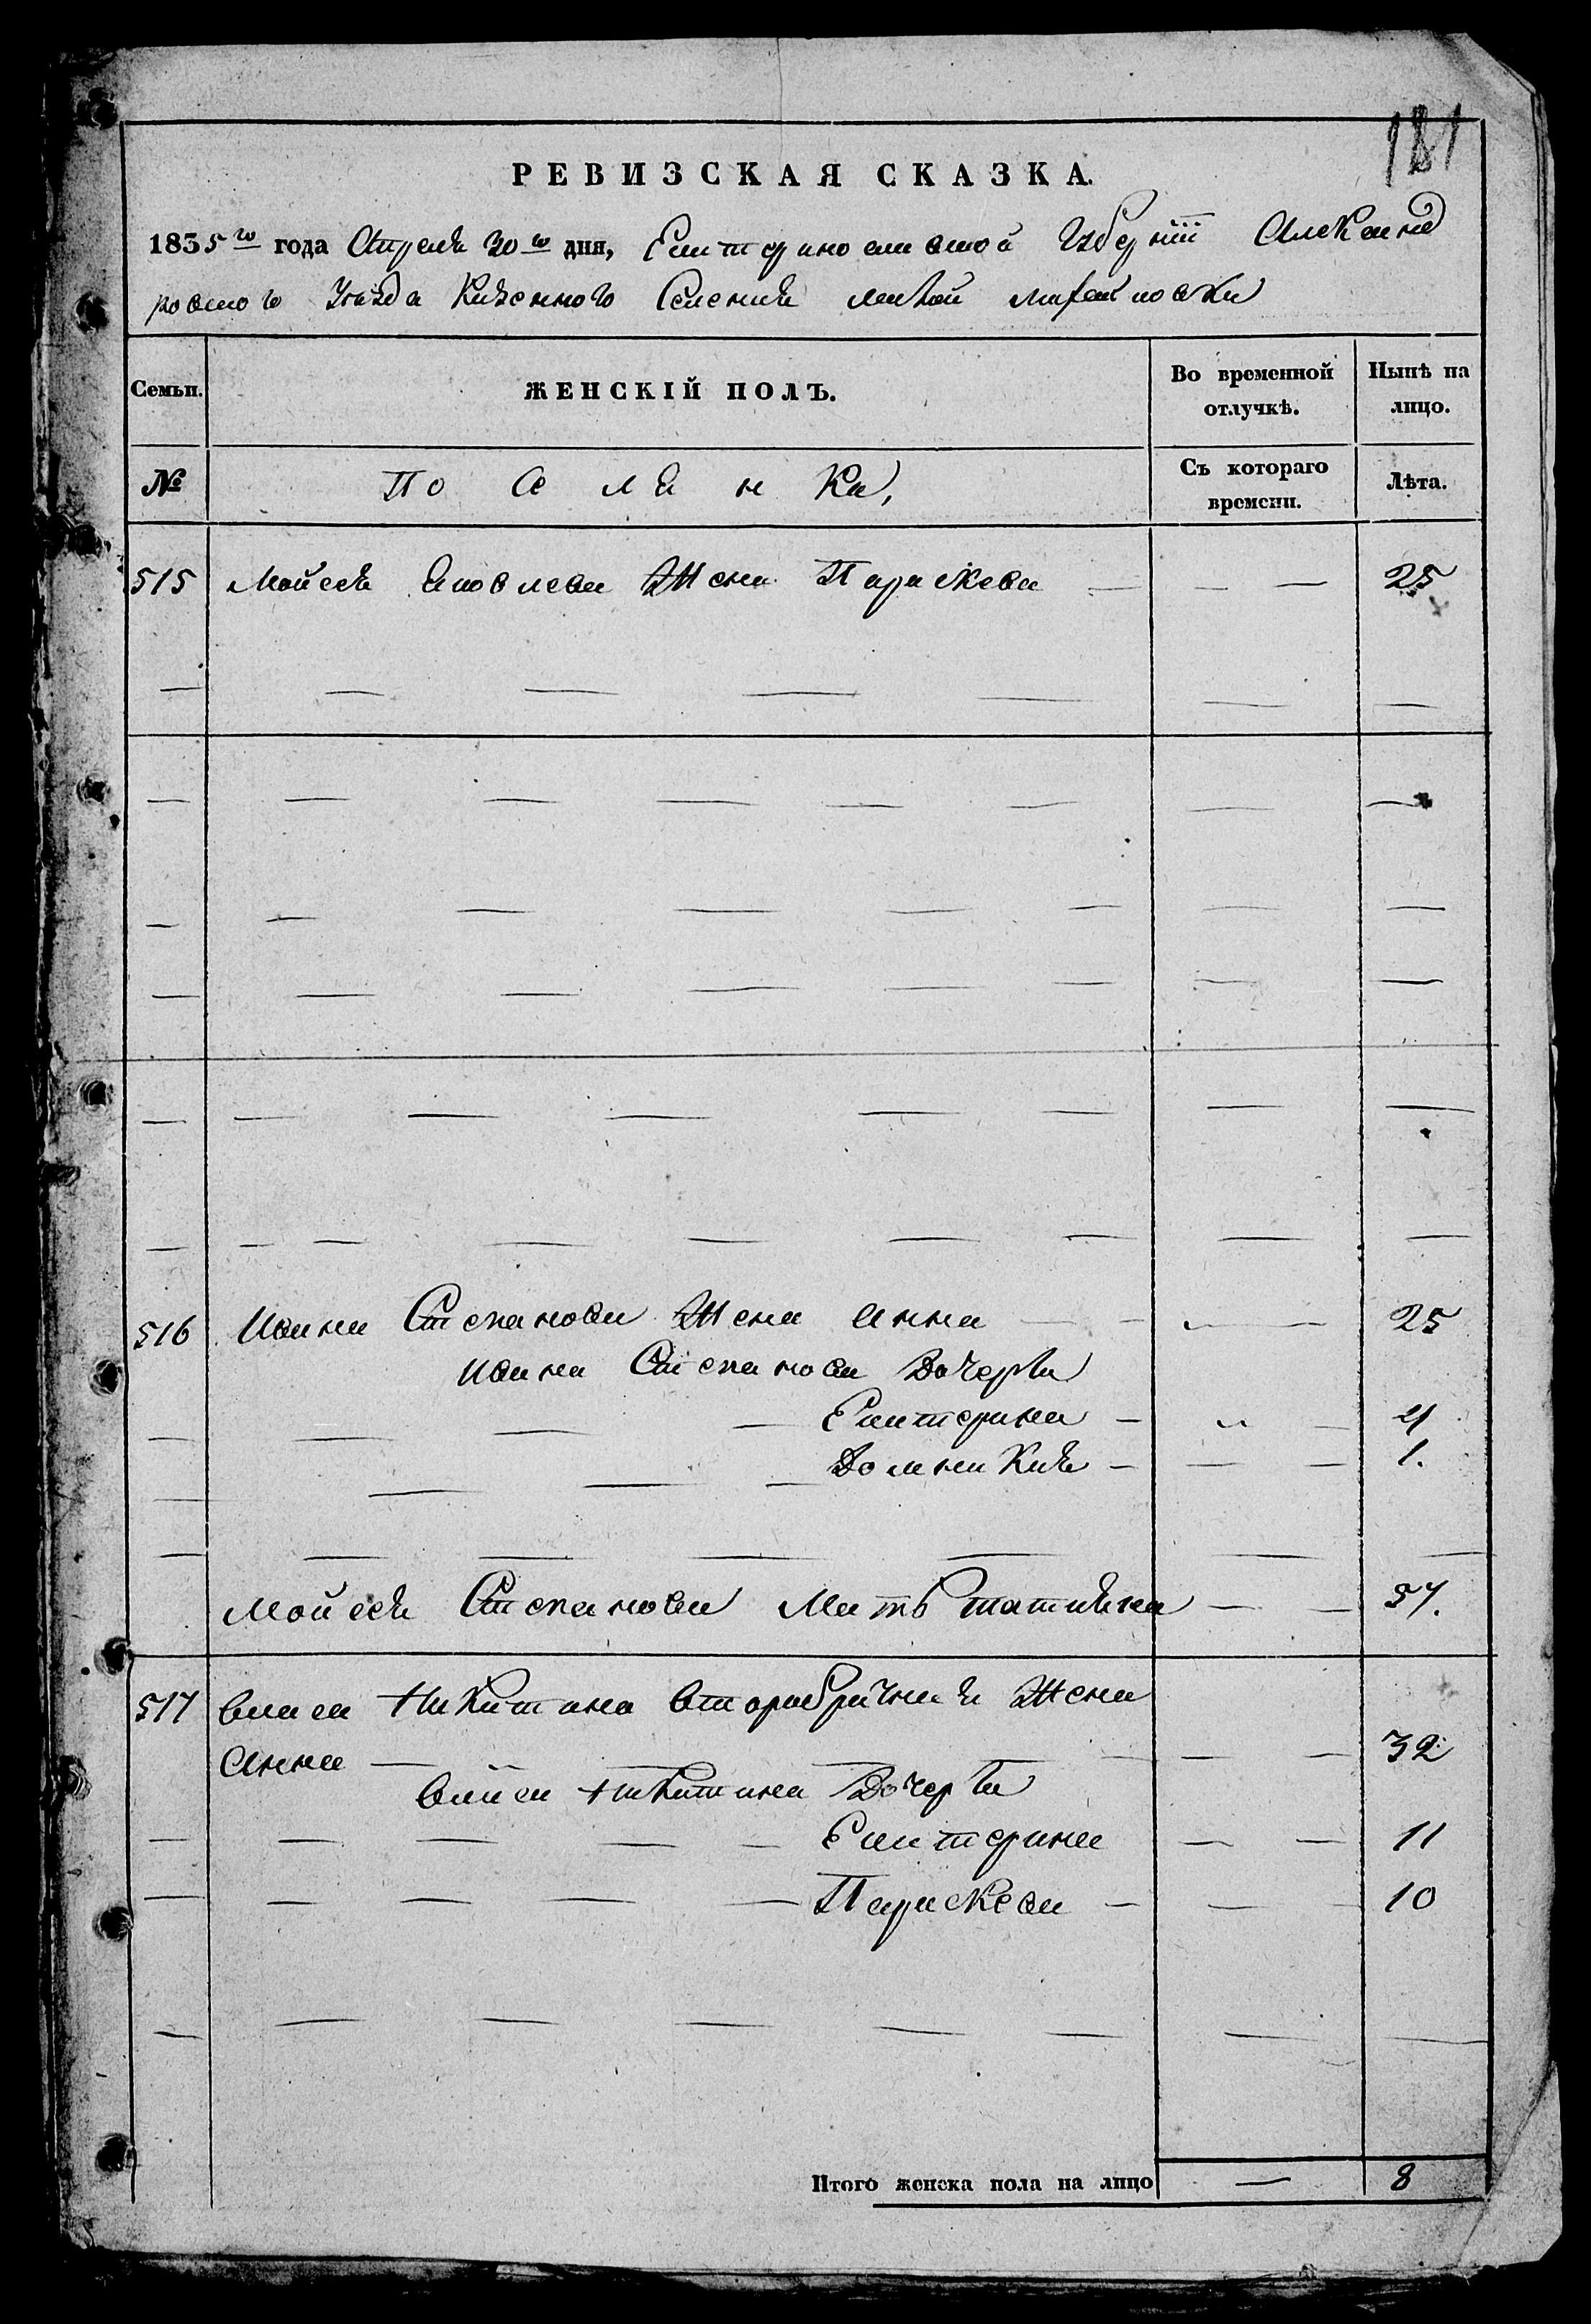 181
РЕВИЗСКАЯ СКАЗКА.
1835го года Апреля 30го дня, Екатеринославской Губернiи Александ
ровского Уезда Казенного Селения
Семьи. ЖЕНСКІЙ ПОЛЪ. Во временной отлучкѣ. Нынѣ на лицо.
№ Поселянка, Съ котораго времени. Лѣта.
515 Мойсея Яковлева Жена Параскева — 25
516 Ивана Степанова Жена Анна — 25
Ивана Степанова Дочери
Екатерина — 4
Домникия — 1.
Мойсея Степанова Мать Татияна — 57.
517 Власа Никитина второбрачная Жена
Анна — 32
Власа Никитина Дочери
Екатерина — 11
Параскева — 10
Итого женска пола на лицо — 8